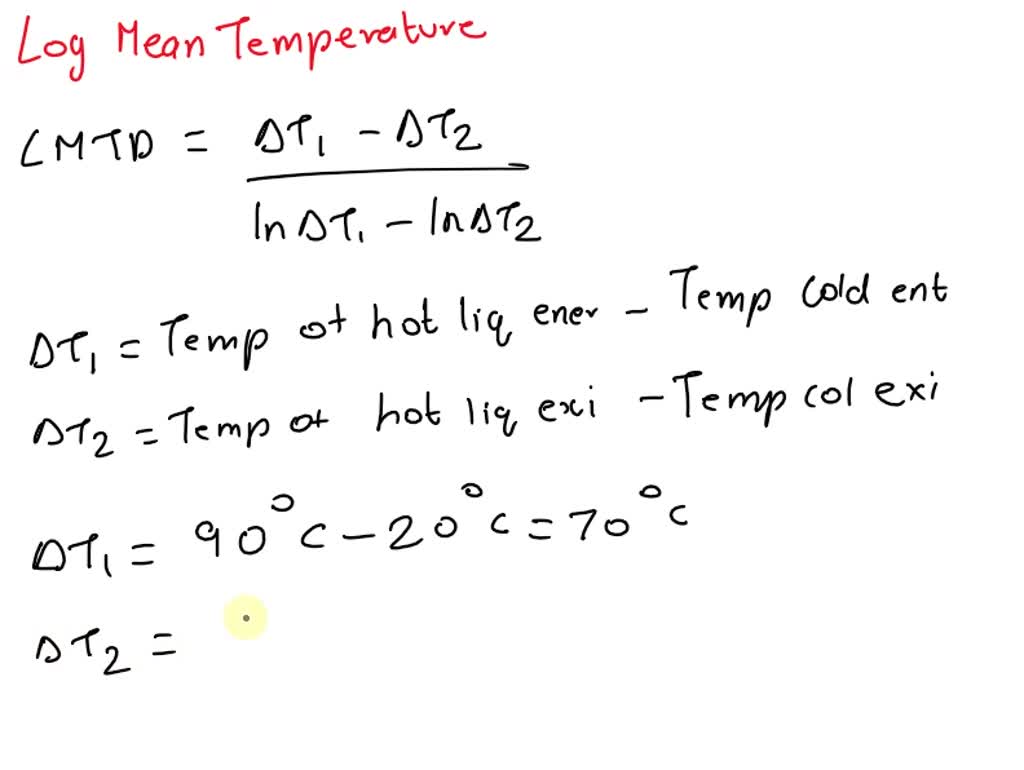 Log Mean Temperature
LMTD = ΔT1 - ΔT2
ln ΔT1 - ln ΔT2
ΔT1 = Temp of hot liq ener - Temp Cold ent
ΔT2 = Temp of hot liq exi - Temp col exi
ΔT1 = 90°C - 20°C = 70°C
ΔT2 =